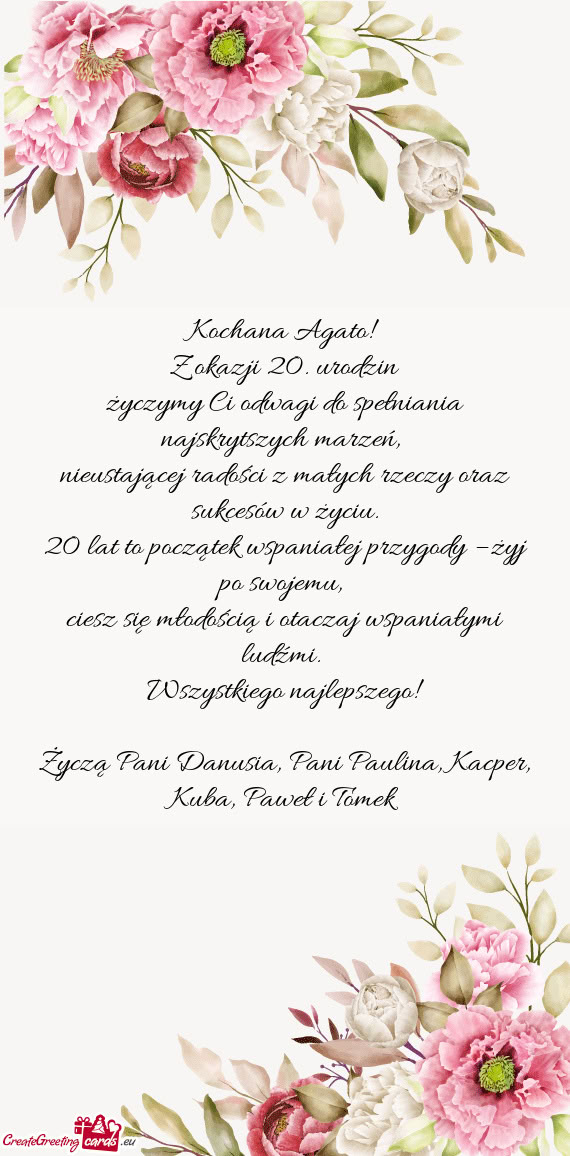 Kochana Agato!
Z okazji 20. urodzin
życzymy Ci odwagi do spełniania
najskrytszych marzeń,
nieustającej radości z małych rzeczy oraz
sukcesów w życiu.
20 lat to początek wspaniałej przygody – żyj
po swojemu,
ciesz się młodością i otaczaj wspaniałymi
ludźmi.
Wszystkiego najlepszego!
Życzą Pani Danusia, Pani Paulina, Kacper,
Kuba, Paweł i Tomek
CreateGreeting cards .eu